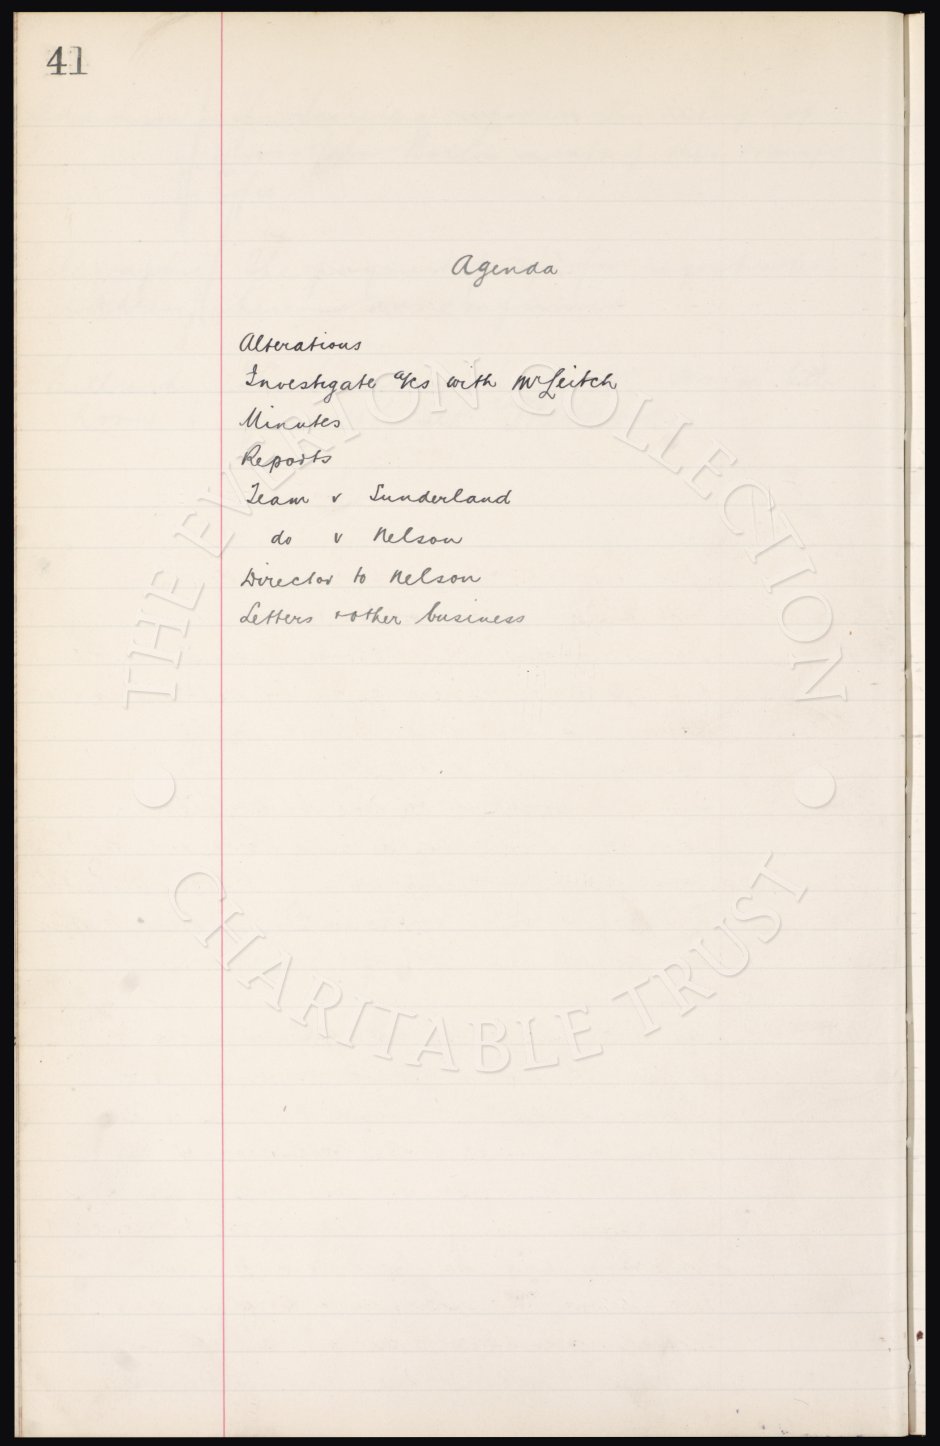 41
Agenda
Alterations
Investigate a/cs with Mr Leitch
Minutes
Reports
Team v Sunderland
do v Nelson
Director to Nelson
Letters & other business
THE EVERTON COLLECTION
CHARITABLE TRUST